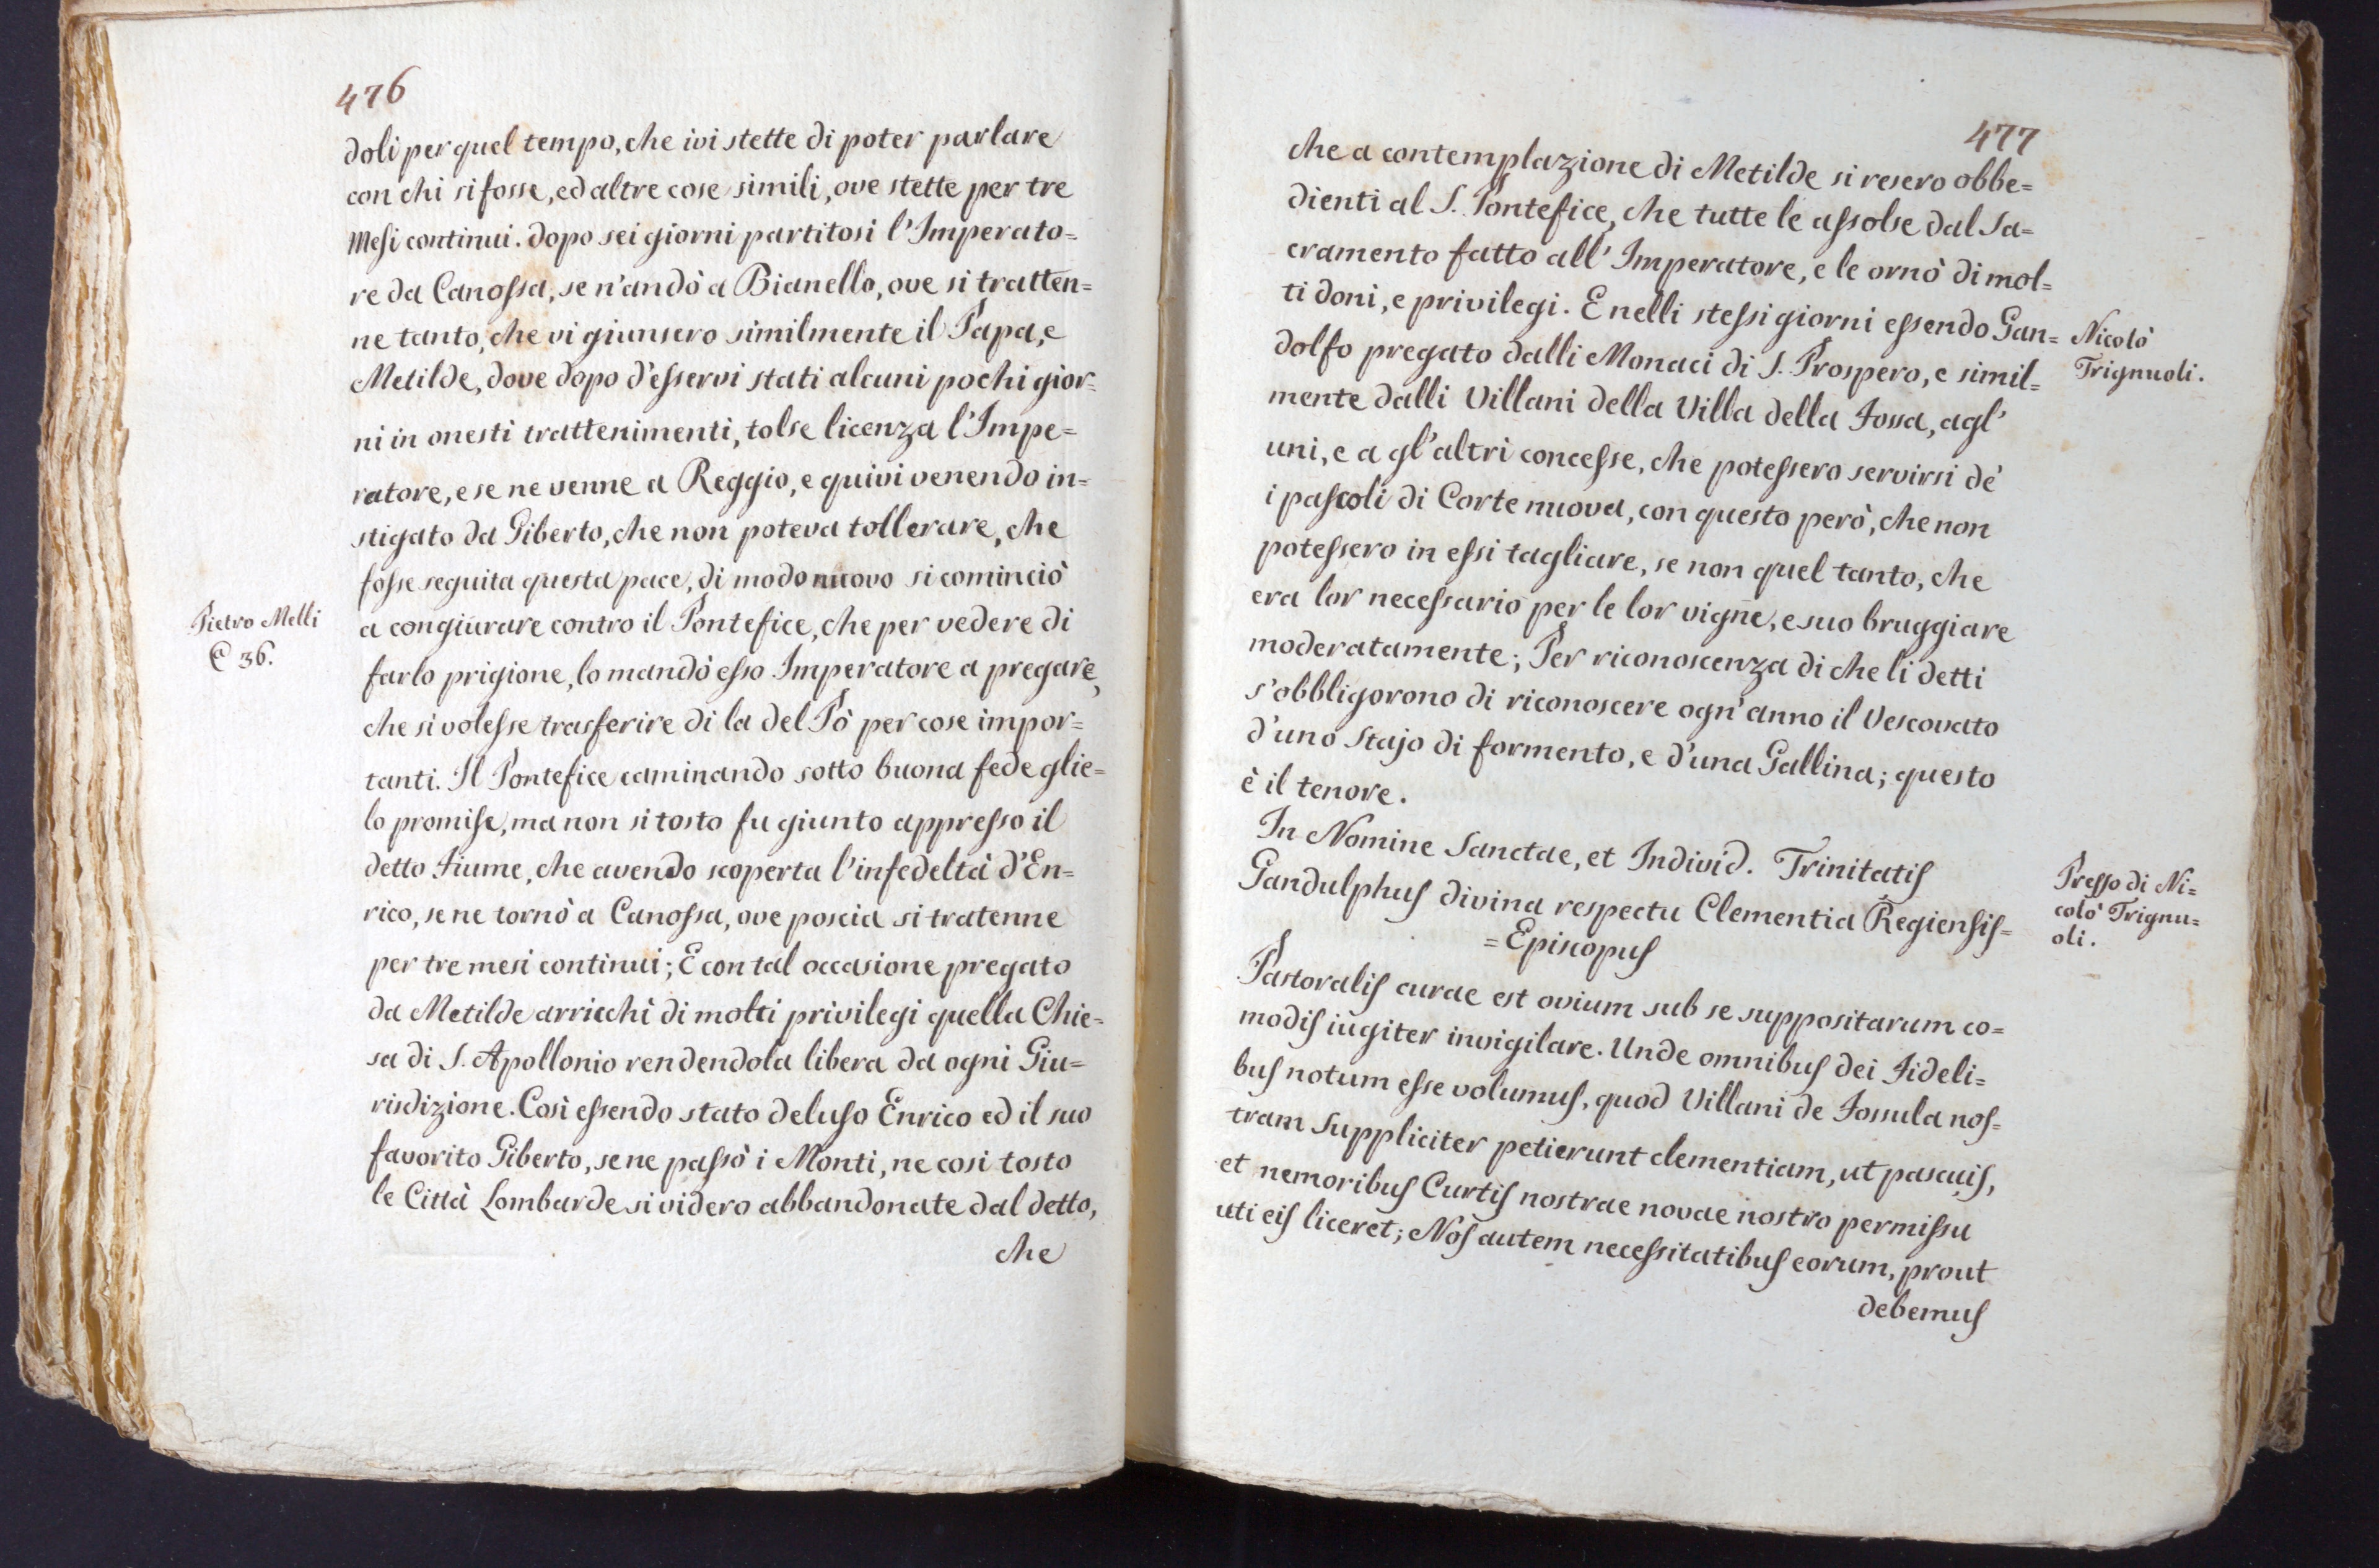 476
doli per quel tempo, che ivi stette di poter parlare
con chi si fosse, ed altre cose simili, ove stette per tre
Mesi continui. dopo sei giorni partitosi l'Imperato=
re da Canossa, se n'andò a Bianello, ove si tratten=
ne tanto, che vi giunsero similmente il Papa, e
Metilde, dove dopo d'esservi stati alcuni pochi gior=
ni in onesti trattenimenti, tolse licenza l'Impe=
ratore, e se ne venne a Reggio, e quivi venendo in=
stigato da Giberto, che non poteva tollerare, che
fosse seguita questa pace, di modo nuovo si cominciò
a congiurare contro il Pontefice, che per vedere di
farlo prigione, lo mandò esso Imperatore a pregare,
che si volesse trasferire di la del Pò per cose impor=
tanti. Il Pontefice caminando sotto buona fede glie=
lo promise, ma non si tosto fu giunto appresso il
detto Fiume, che avendo scoperta l'infedeltà d'En=
rico, se ne tornò a Canossa, ove poscia si tratenne
per tre mesi continui; E con tal occasione pregato
da Metilde arricchì di molti privilegi quella Chie=
sa di S. Apollonio rendendola libera da ogni Giu=
risdizione. Così essendo stato deluso Enrico ed il suo
favorito Giberto, se ne passò i Monti, ne così tosto
le Città Lombarde si videro abbandonate dal detto,
che
Pietro Melli
@ 36.
477
che a contemplazione di Metilde si resero obbe=
dienti al S. Pontefice, che tutte le assolse dal Sa=
cramento fatto all' Imperatore, e le ornò di mol=
ti doni, e privilegi. E nelli stessi giorni essendo Gan=
dolfo pregato dalli Monaci di S. Prospero, e simil=
mente dalli Villani della Villa della Fossa, agl'
uni, e a gl'altri concesse, che potessero servirsi dè
i pascoli di Corte nuova, con questo però, che non
potessero in essi tagliare, se non quel tanto, che
era lor necessario per le lor vigne, e suo bruggiare
moderatamente; Per riconoscenza di che li detti
s'obbligorono di riconoscere ogn'anno il Vescovato
d'uno Stajo di formento, e d'una Gallina; questo
è il tenore.
In Nomine Sanctae, et Individ. Trinitatis
Gandulphus divina respectu Clementia Regiensis=
=Episcopus
Pastoralis curae est ovium sub se suppositarum co=
modis iugiter invigilare. Unde omnibus dei Fideli=
bus notum esse volumus, quod Villani de Fossula nos=
tram Suppliciter petierunt clementiam, ut pascuis,
et nemoribus Curtis nostrae novae nostro permissu
uti eis liceret; Nos autem necessitatibus eorum, prout
debemus
Nicolò
Trignuoli.
Presso di Ni=
colò Trignu=
oli.